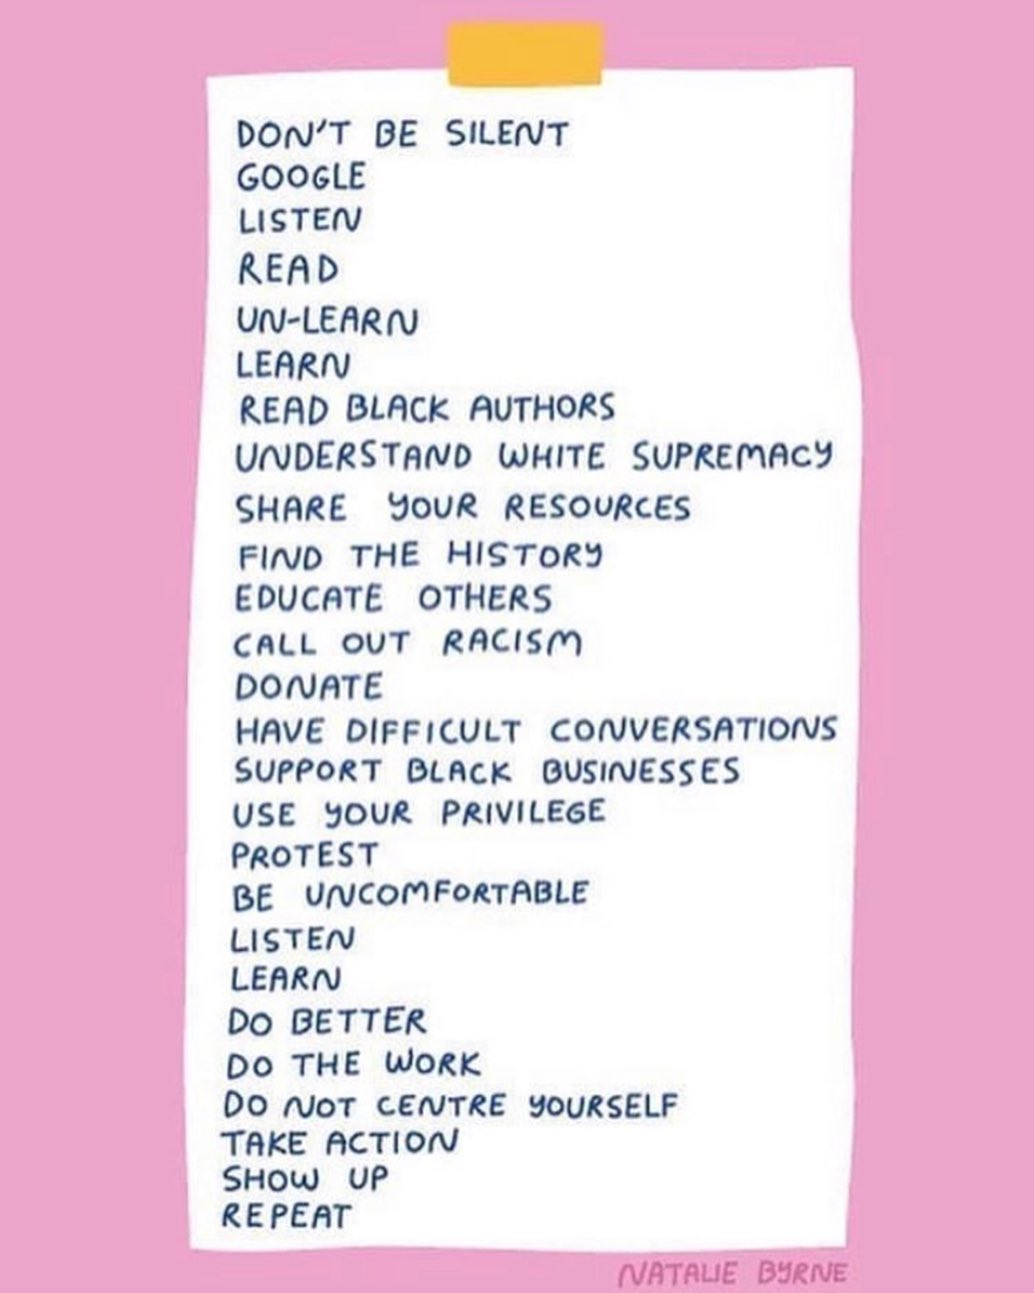 DON'T BE SILENT
GOOGLE
LISTEN
READ
UN-LEARN
LEARN
READ BLACK AUTHORS
UNDERSTAND WHITE SUPREMACY
SHARE YOUR RESOURCES
FIND THE HISTORY
EDUCATE OTHERS
CALL OUT RACISM
DONATE
HAVE DIFFICULT CONVERSATIONS
SUPPORT BLACK BUSINESSES
USE YOUR PRIVILEGE
PROTEST
BE UNCOMFORTABLE
LISTEN
LEARN
DO BETTER
DO THE WORK
DO NOT CENTRE YOURSELF
TAKE ACTION
SHOW UP
REPEAT
NATALIE BYRNE